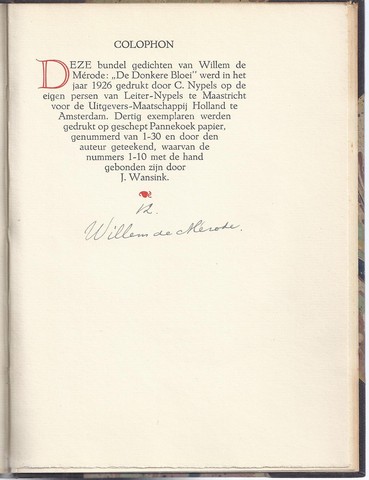 COLOPHON
DEZE bundel gedichten van Willem de
Mérode: „De Donkere Bloei” werd in het
jaar 1926 gedrukt door C. Nypels op de
eigen persen van Leiter-Nypels te Maastricht
voor de Uitgevers-Maatschappij Holland te
Amsterdam. Dertig exemplaren werden
gedrukt op geschept Pannekoek papier,
genummerd van 1-30 en door den
auteur geteekend, waarvan de
nummers 1-10 met de hand
gebonden zijn door
J. Wansink.
12.
Willem de Mérode.